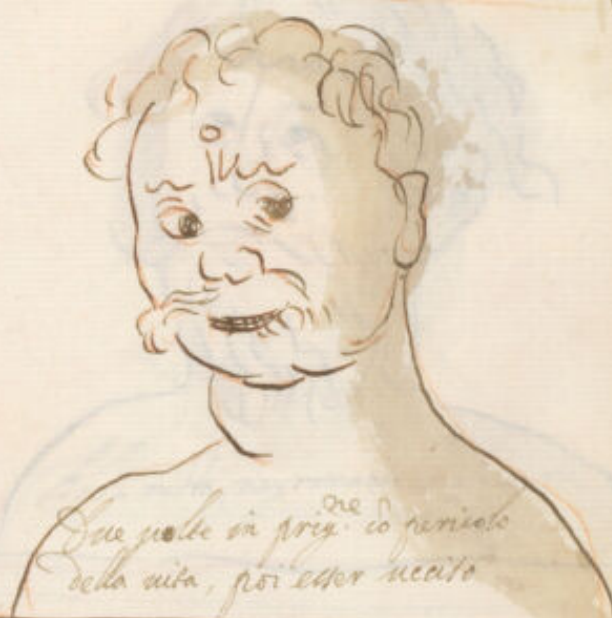 Due uolte in prig.ne cõ pericolo
della uita, poi esser ucciso